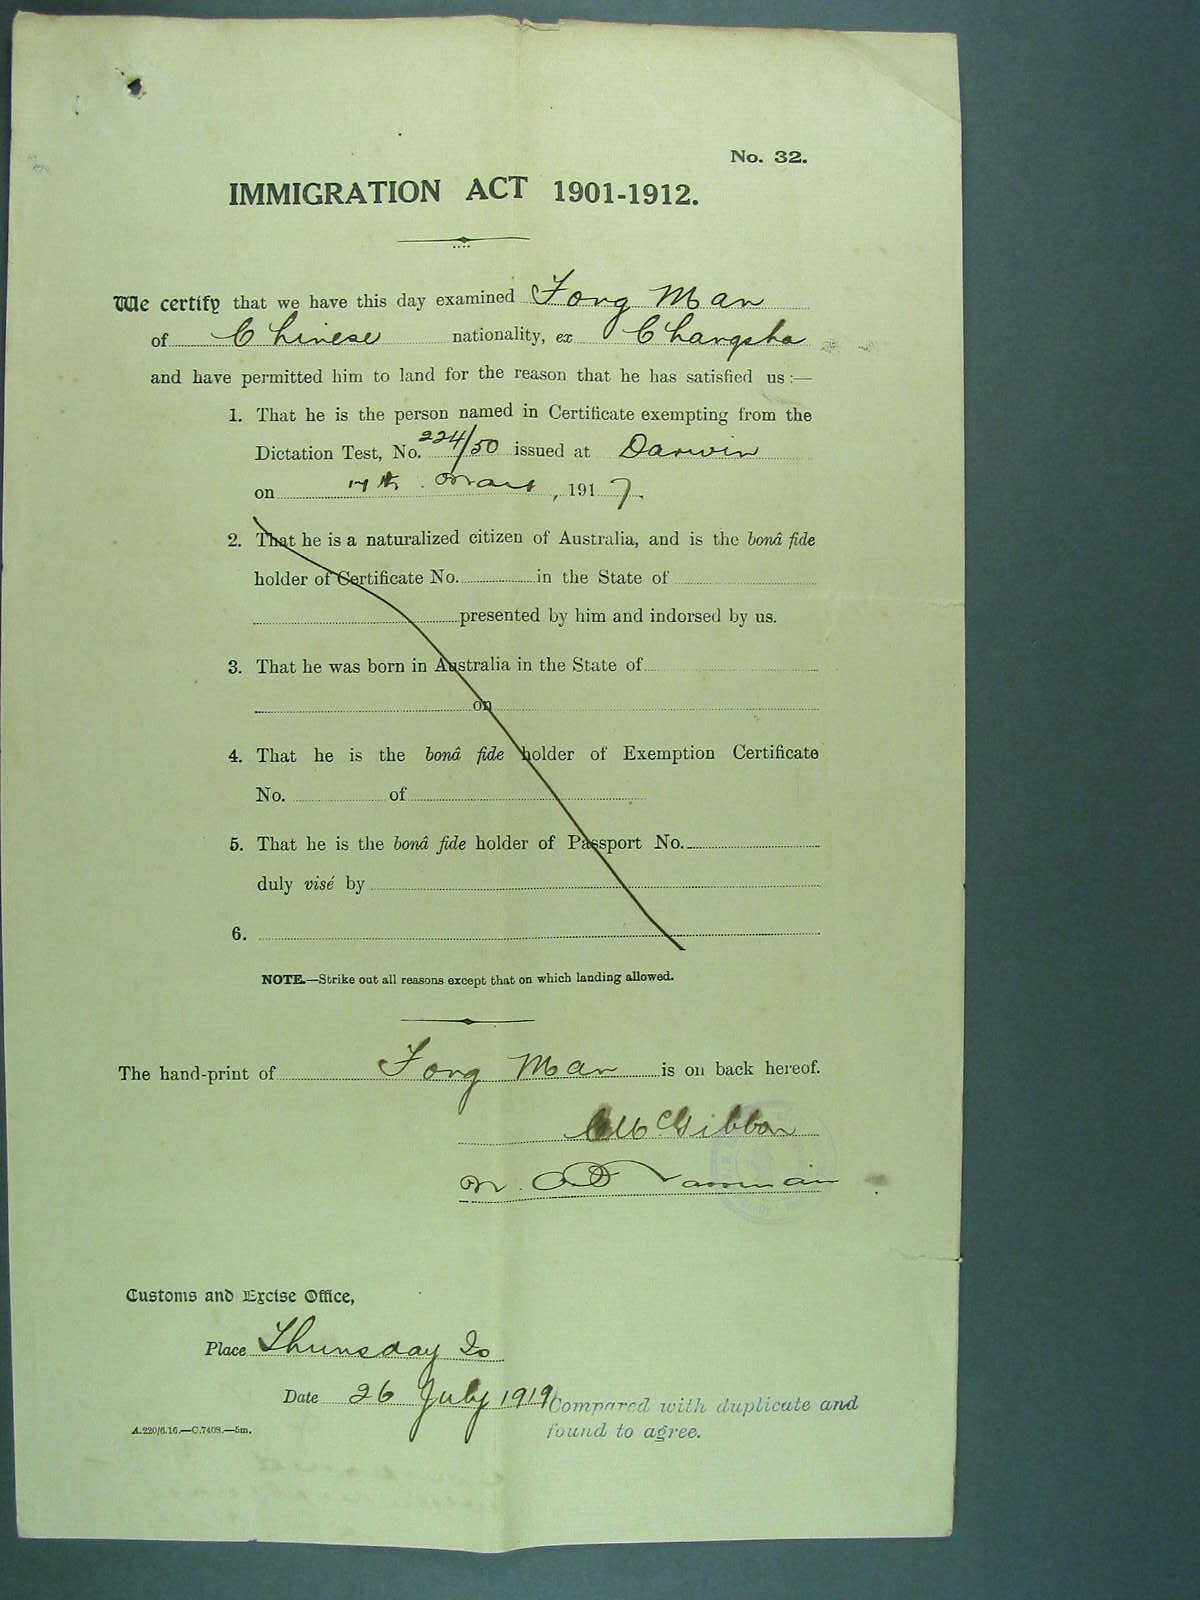 No. 32.
IMMIGRATION ACT 1901-1912.
We certify that we have this day examined Fong Man
of Chinese nationality, ex Changsha
and have permitted him to land for the reason that he has satisfied us :—
1. That he is the person named in Certificate exempting from the
Dictation Test, No. 224/50 issued at Darwin
on 17th , 1917.
2. That he is a naturalized citizen of Australia, and is the bonâ fide
holder of Certificate No. in the State of
presented by him and indorsed by us.
3. That he was born in Australia in the State of
on
4. That he is the bonâ fide holder of Exemption Certificate
No. of
5. That he is the bonâ fide holder of Passport No.
duly visé by
6.
NOTE.—Strike out all reasons except that on which landing allowed.
The hand-print of Fong Man is on back hereof.
McGibbon
Customs and Excise Office,
Place Thursday Is
Date 26 July 1919
Compared with duplicate and
found to agree.
A.220/6.16.—C.7408.—5m.